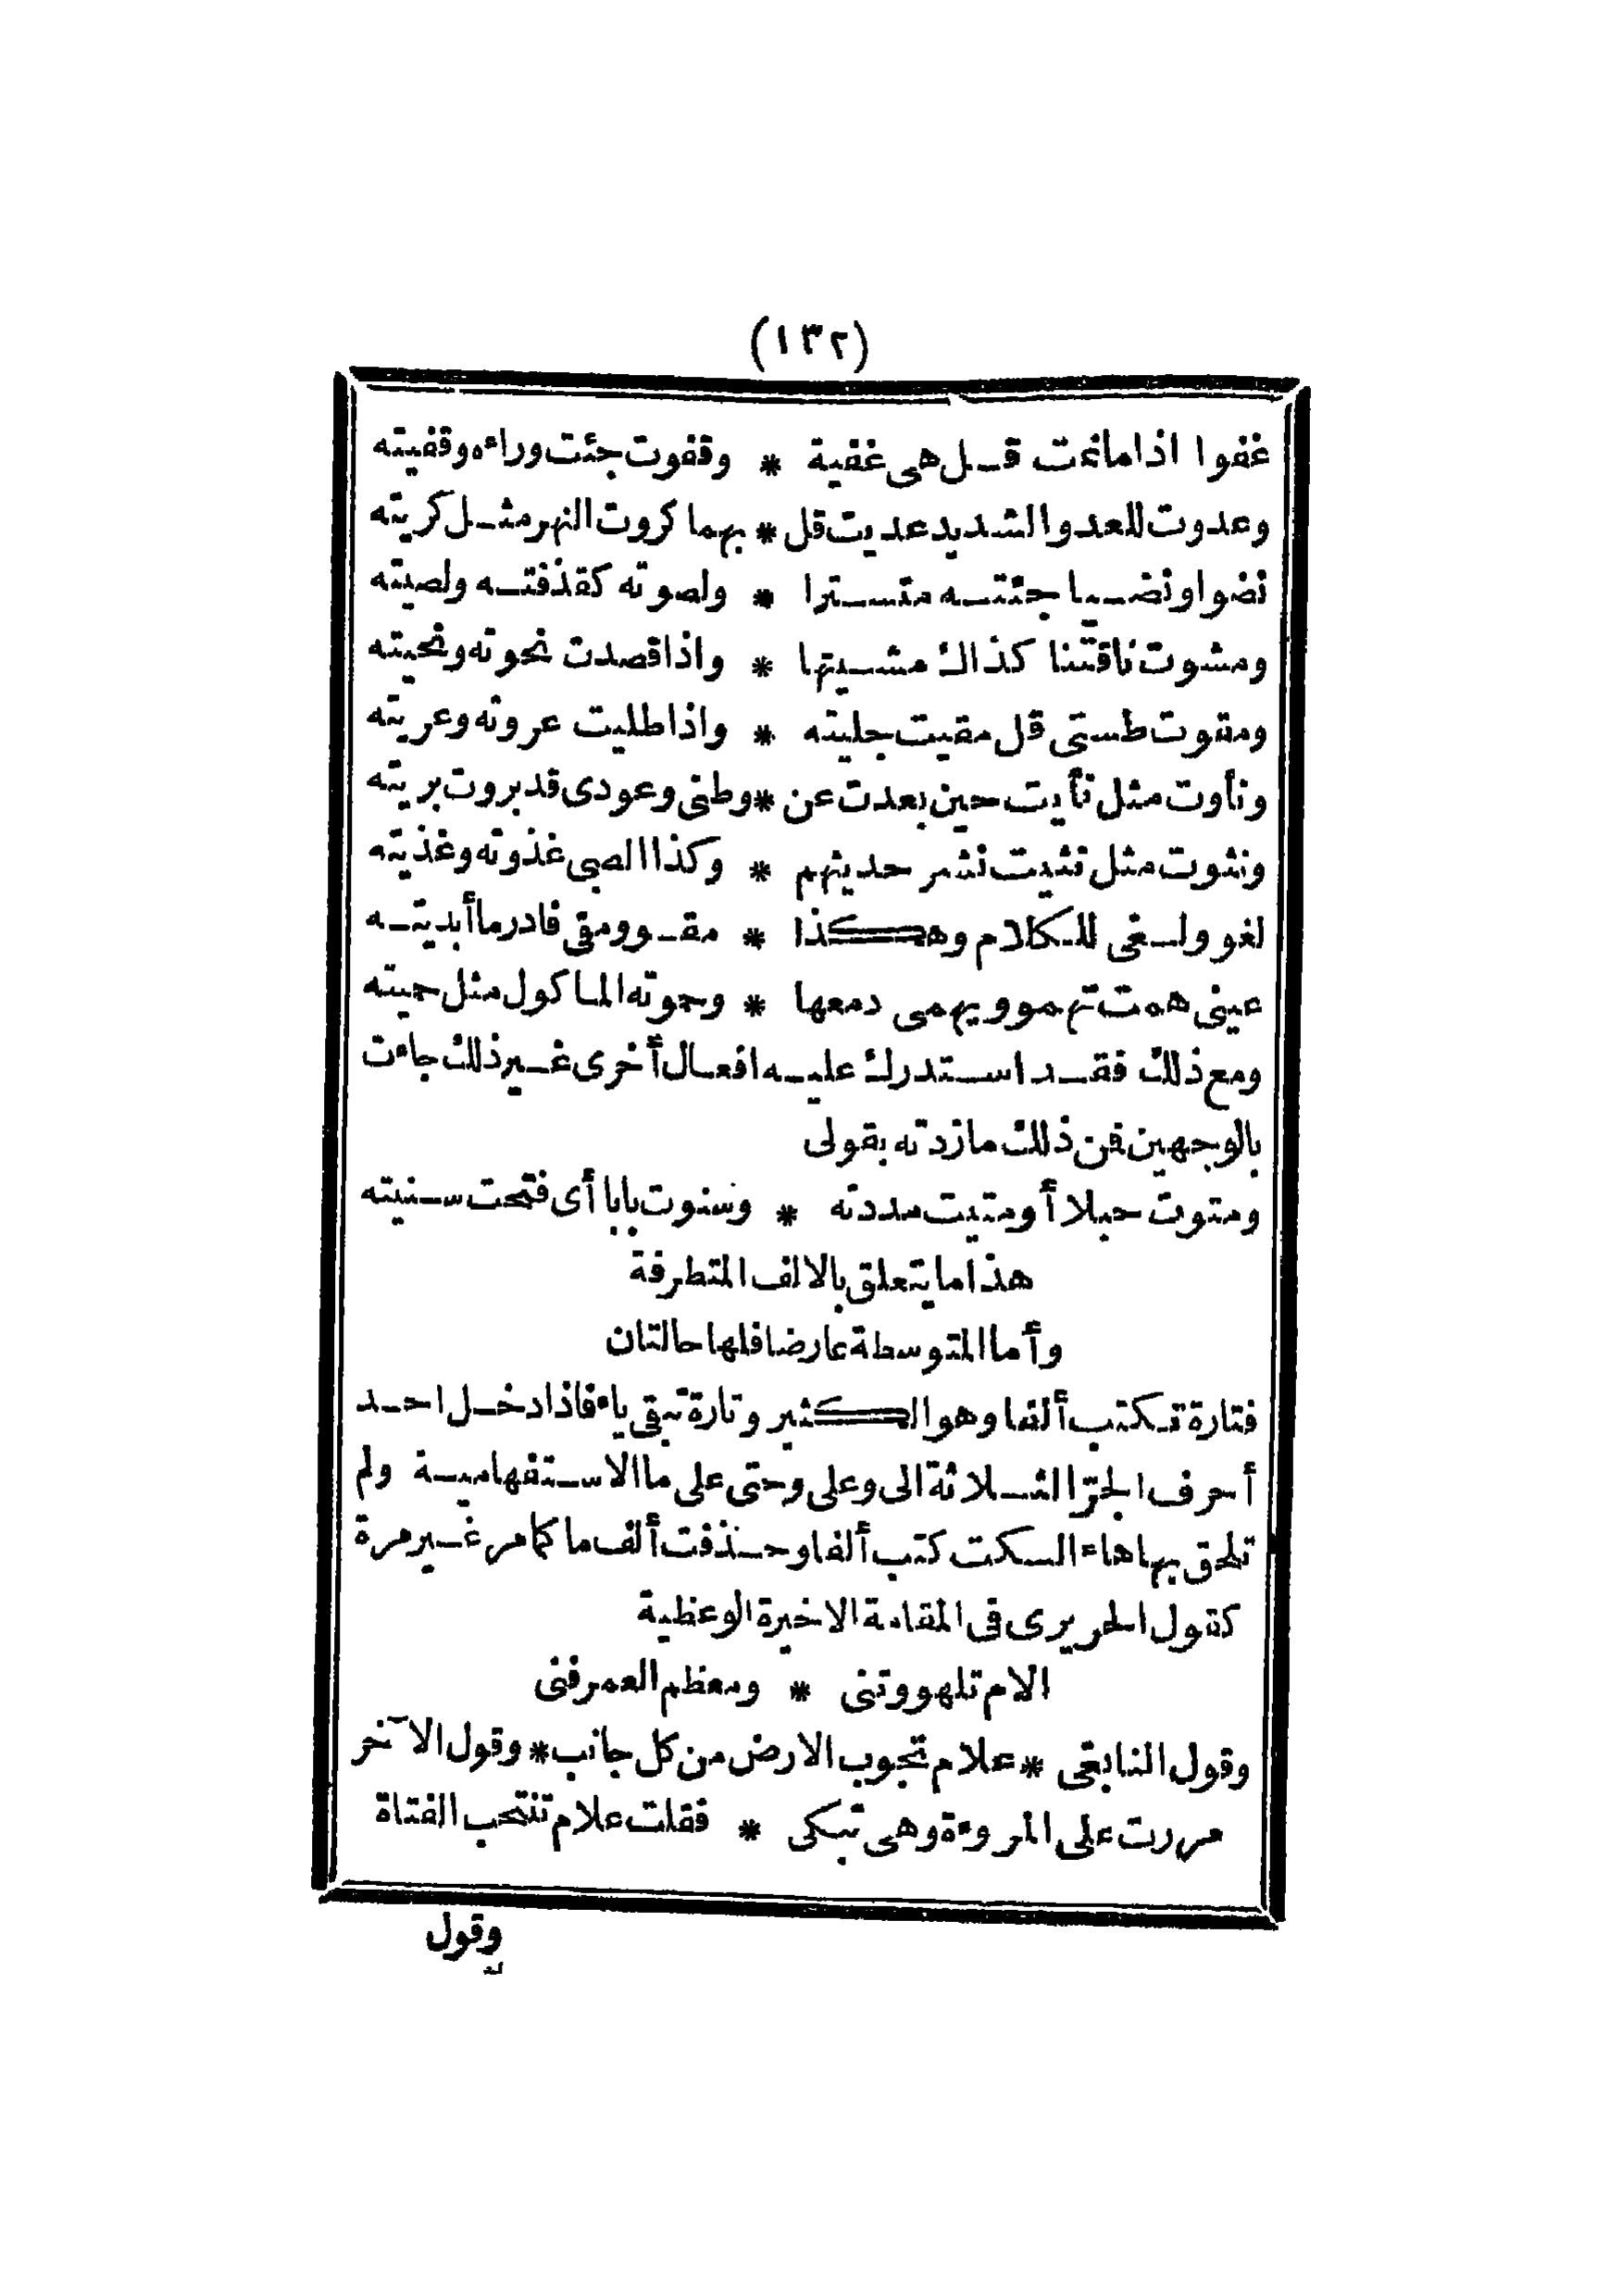 (١٣٢)
غفوا اذا ما نمت قل هى غفية * وقفوت جئت وراءه وقفيته
وعدوت للعدو الشديد عديت قل * بهما كروت النهر مثل كريته
نضوا ونضيا جئته متسترا * ولصوته كقذفته ولصيته
ومشوت ناقتنا كذاك مشيتها * واذا قصدت نحوته ونحيته
ومقوت طستى قل مقيت جليته * واذا طليت عروته وعريته
ونأوت مثل نأيت حين بعدت عن * وطنى وعودى قد بروت بريته
ونثوت مثل نثيت نشر حديثهم * وكذا الصبى غذوته وغذيته
لغو ولغى للكلام وهكذا * مقو ومقى فادر ما أبديته
عينى همت تهمو ويهمى دمعها * وحموته الماكول مثل حميته
ومع ذلك فقد استدرك عليه افعال أخرى غير ذلك جاءت
بالوجهين فمن ذلك ما زدته بقولى
ومتوت حبلا أو متيت مددته * وسنوت بابا أى فتحت سنيته
هذا ما يتعلق بالالف المتطرفة
وأما المتوسطة عارضا فلها حالتان
فتارة تكتب ألفا وهو الكثير وتارة تبقى ياء فاذا دخل احد
أحرف الجرّ الثلاثة الى وعلى وحتى على ما الاستفهامية ولم
تلحق بها هاء السكت كتب ألفا وحذفت ألف ما كما مر غير مرة
كقول الحريرى فى المقامة الاخيرة الوعظية
الام تلهو وتنى * ومعظم العمر فنى
وقول النابغى * علام تجوب الارض من كل جانب * وقول الآخر
مررت على المروءة وهى تبكى * فقلت علام تنتحب الفتاة
وقول